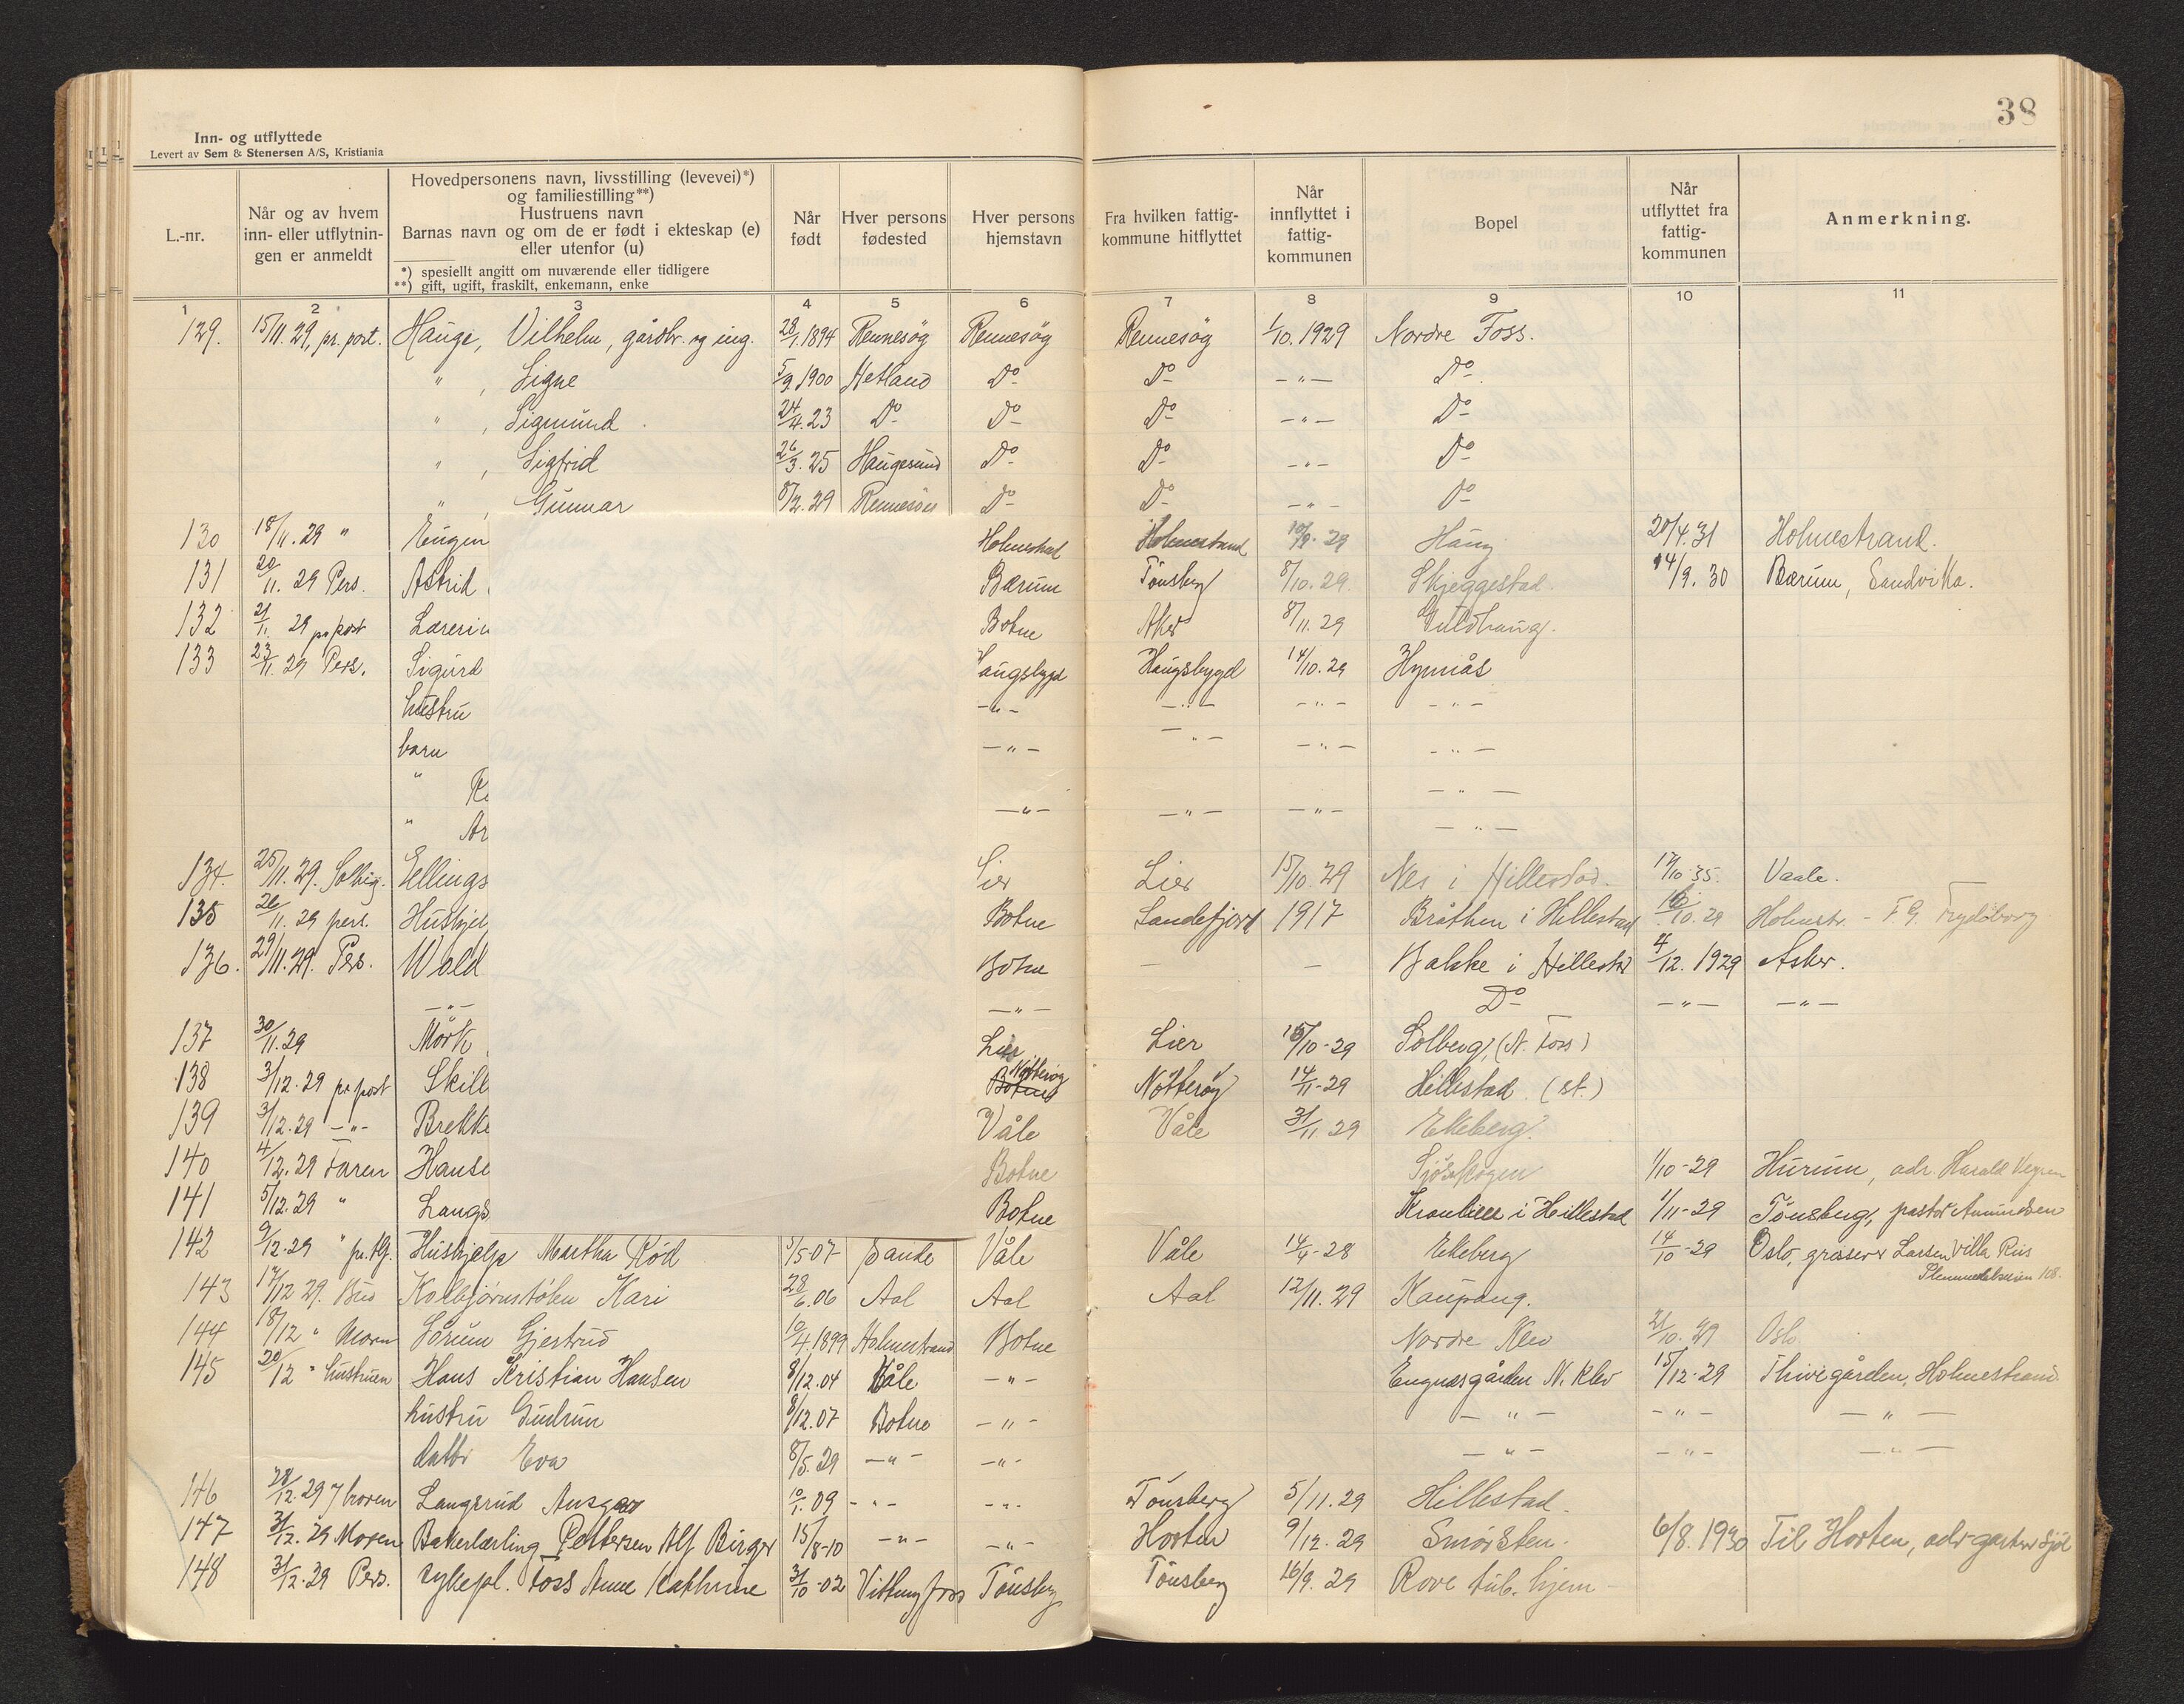 38
Inn- og utflyttede
Levert av Sem & Stenersen A/S, Kristiania
L.-nr.
Når og av hvem inn- eller utflytnin- gen er anmeldt
Hovedpersonens navn, livsstilling (levevei)*)
og familiestilling**)
Hustruens navn
Barnas navn og om de er født i ekteskap (e)
eller utenfor (u)
*) spesiellt angitt om nuværende eller tidligere
**) gift, ugift, fraskilt, enkemann, enke
Når født
Hver persons fødested
Hver persons hjemstavn
Fra hvilken fattig- kommune hitflyttet
Når innflyttet i fattig- kommunen
Bopel
Når utflyttet fra fattig- kommunen
Anmerkning.
1 2 3 4 5 6 7 8 9 10 11
129. 15/11. 29, pr. post. Hauge, Vilhelm, gårdbr. og ing. 28/1. 1894 Rennesøy Rennesøy Rennesøy 1/10. 1929 Nordre Foss.
" , Signe 5/9 1900 Hetland Do Do -"- Do.
" , Sigmund 24/4. 23 Do Do Do -"- Do
" , Sigfrid 26/3. 25 Haugesund Do Do -"- Do
" , Gunnar 8/2. 29 Do Do -"- Do
130 18/11. 29 " Eugen Holmestrand 29 Haug 20/4. 31 Holmestrand.
131 20/11. 29 Pers. Astrid Bærum Tønsberg 8/10. 29. Skjeggestad. 14/9. 30 Bærum, Sandvika.
132 21/11. 29 pr post Lærerin Botne Aker 8/11. 29
133 23/11. 29 Pers. Sigurd Haugsbygd Haugsbygd 14/10. 29
hustru -"- -"- -"- -"-
barn -"- -"- -"- -"-
" -"-
-"- -"- -"-
" Ar -"-
134. 25/11. 29. Ellings Lier Lier 15/10. 29 Nes i Hillestad. 17/10. 35. Vaale.
135 26/11. 29 pers. Hushjel Botne Sandefjord 1917 Bråthen i Hillestad 10. 29 Holmestr.
136. 29/11. 29. Pers. Wold Botne - - Bakke i Hillestad 4/12. 1929 Asker.
-"- -"- Do -"- -"-
137 30/11. 29 Mørk Lier Lier 10-29 Solberg, (N. Foss)
138 3/12. 29 pr post Skill Nøtterøy Botne Nøtterøy 14/11-29 Hillestad (st.)
139 3/12. 29 -"- Brekke Våle Våle 31/11 29 Ekeberg.
140 4/12. 29 Faren Hanse Botne Sjøskogen 1/10-29 Hurum, adr. Harald
141 5/12. 29 " Langs Botne i Hillestad 1/11-29 Tønsberg, pastor Amundsen
142 9/12. 29 " Hushjelp Martha Rød 5-07 Sande Våle Våle 28 Ekeberg 14/10-29 Oslo, grosserer Larsen villa Riis
108.
143 17/12 29. Bud Kolbjørnsløkn Kari 28/6. 06 Aal Aal Aal 12/11. 29 Kaupang.
144 18/12 " Moren Sørum Gjestrud 10/4. 1899 Holmestrand Botne Nordre Klev 21/10. 29 Oslo.
145 20/12 " hustruen Hans Kristian Hansen 8/12. 04 Våle -"- Engnæsgården N. Klev 15/12-29 Holmestrand
hustru Gudrun 8/12. 07 Botne -"- -"- -"- -"-
datter Eva 8/5. 29 -"- -"- -"- -"- -"-
146 28/12. 29 Langsrud Ansgar 10/1. 09 -"- -"- Tønsberg 5/11. 29 Hillestad.
147 31/12. 29 Moren Bakerlærling Pettersen Alf Birger 15/8-10 -"- -"- Horten 9/12. 29 Smørsten. 6/8. 1930 Til Horten, adr. gartner
148 31/12. 29 Pers. sykepl. Foss Anne Kathrine 31/10-02 Vittingfoss Tønsberg Tønsberg 16/9. 29 Rove tub. hjem